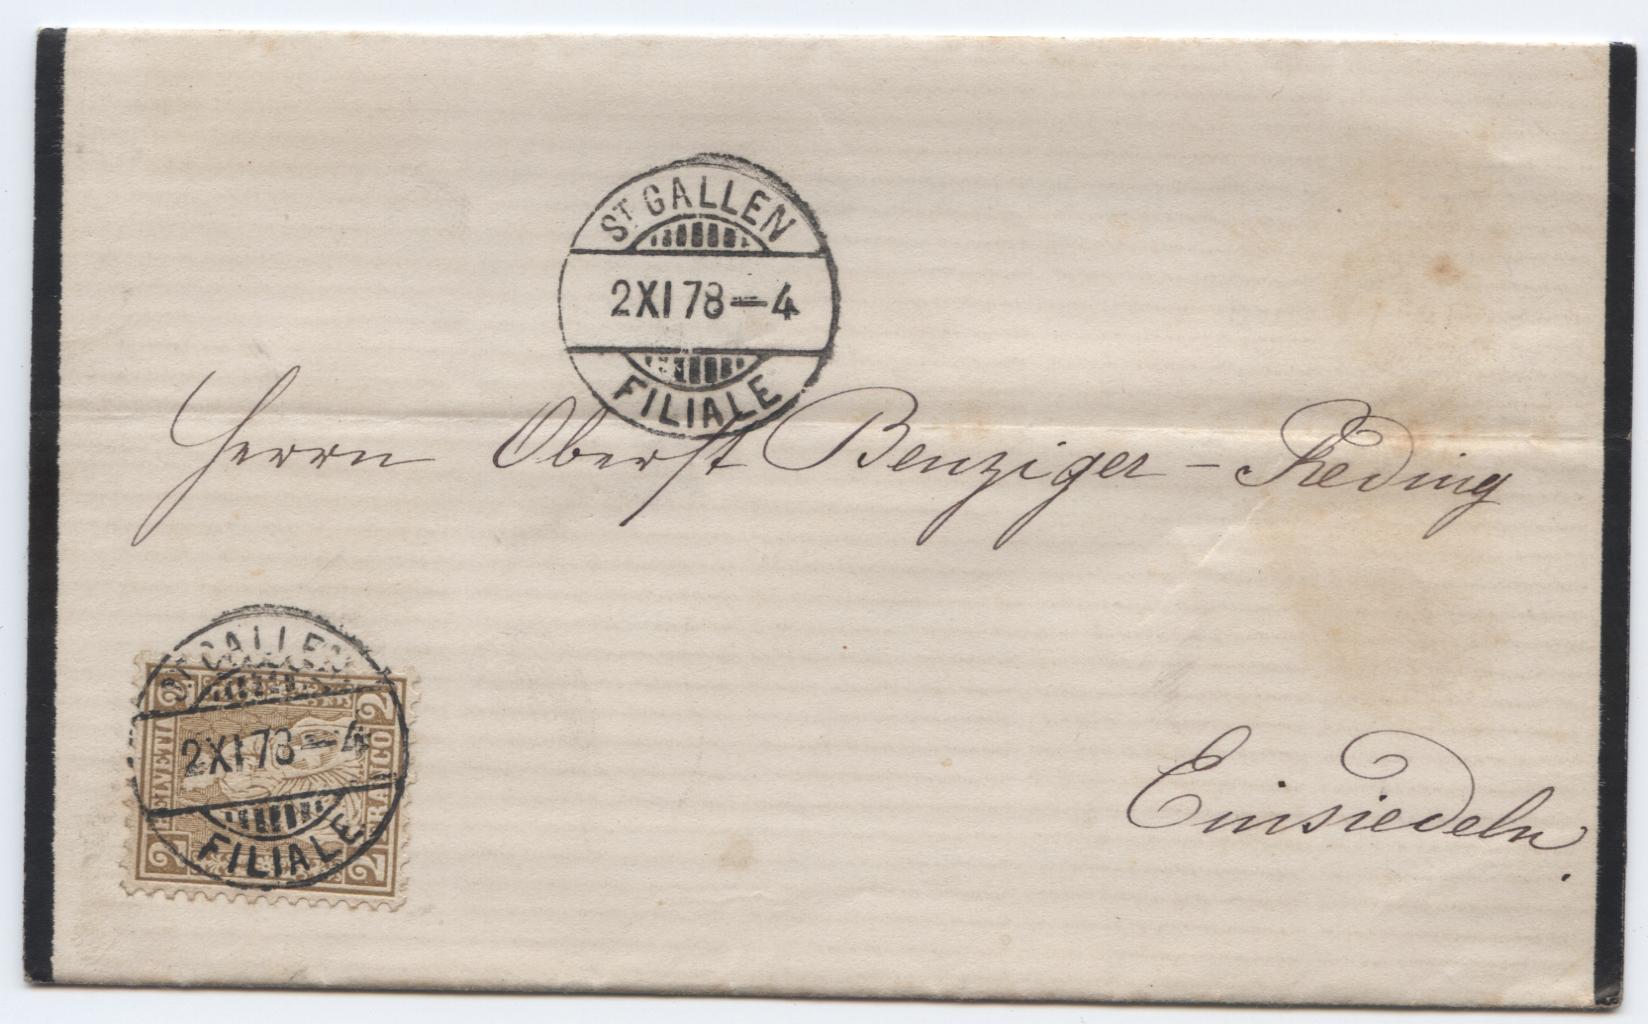 ST. GALLEN
2 XI 78 — 4
FILIALE
Herrn Oberst Benziger - Reding
ST. GALLEN
2 XI 78 — 4
FILIALE
2 HELVETIA 2
2 FRANCO 2
Einsiedeln.